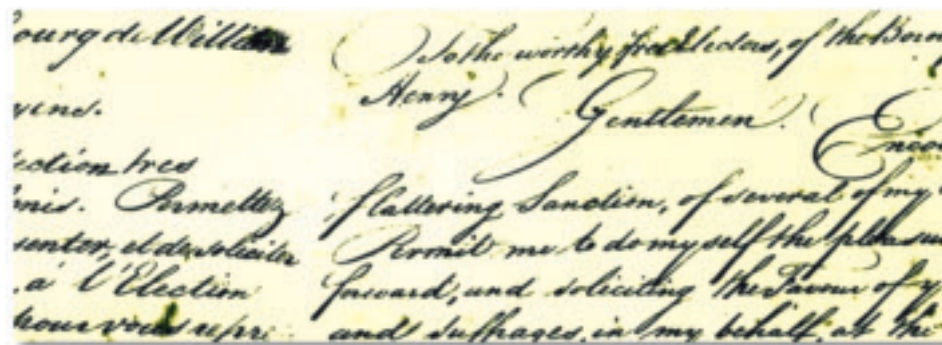 ourg de William
yens.
lection tres
mis. Permettez
senter, et de soliciter
, à l'Election
pour vous repri
To the worthy free Electors, of the Boroug
Henry.
Gentlemen.
Encou
flattering Sanction, of several of my
Permit me to do myself the pleasur
forward, and soliciting the Favour of y
and suffrages, in my behalf, at the